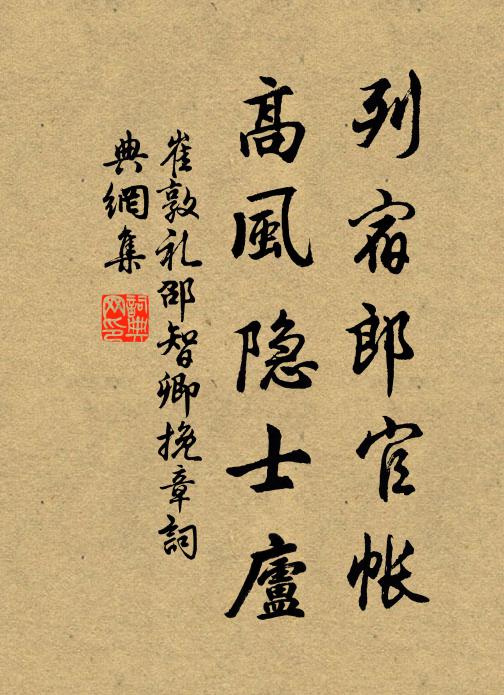 列宿郎官帐
高風隐士廬
崔敦礼邵智卿挽章詞
典網集
詞典網印